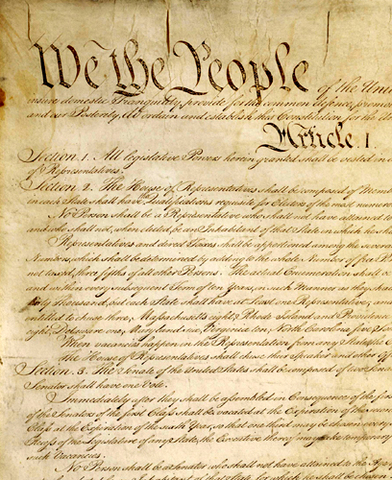 We the People of the Unit
insure domestic Tranquility, provide for the common defence, promo
and our Posterity, do ordain and establish this Constitution for the Un
Article. I.
Section. 1. All legislative Powers herein granted shall be vested in a
of Representatives.
Section. 2. The House of Representatives shall be composed of Mem
in each State shall have Qualifications requisite for Electors of the most numero
No Person shall be a Representative who shall not have attained
and who shall not, when elected, be an Inhabitant of that State in which he sh
Representatives and direct Taxes shall be apportioned among the sever
Numbers, which shall be determined by adding to the whole Number of free P
not taxed, three fifths of all other Persons. The actual Enumeration shall
and within every subsequent Term of ten Years, in such Manner as they sha
thirty Thousand, but each State shall have at Least one Representative; an
entitled to chuse three, Massachusetts eight, Rhode Island and Providence
eight, Delaware one, Maryland six, Virginia ten, North Carolina five, S
When vacancies happen in the Representation from any State, the
The House of Representatives shall chuse their Speaker and other
Section. 3. The Senate of the United States shall be composed of two Sena
Senator shall have one Vote.
Immediately after they shall be assembled in Consequence of the firs
of the Senators of the first Class shall be vacated at the Expiration of the seco
Class at the Expiration of the sixth Year, so that one third may be chosen every s
Recess of the Legislature of any State, the Executive thereof may make tempora
such Vacancies.
No Person shall be a Senator who shall not have attained to the Age